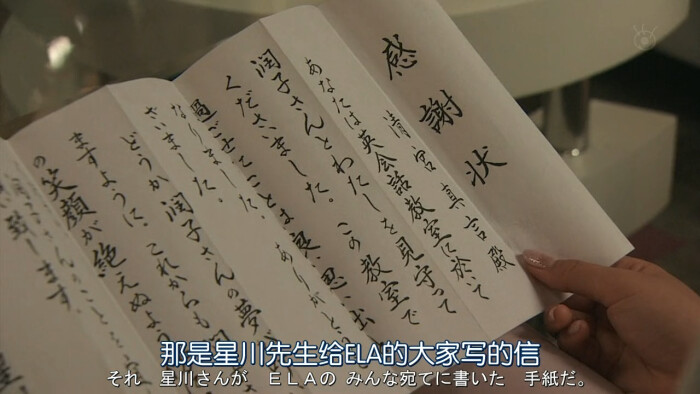 感謝状
清宮真言殿
あなたは英会話教室に於いて
潤子さんとわたしを見守って
くださいました。この教室で
ことは良い思い出
なりました。ありがとう
ざいました。
どうか潤子さんの夢が
ますように、これからも
の笑顔が絶えぬよう
致します。
那是星川先生给ELA的大家写的信
それ 星川さんが ＥＬＡの みんな宛てに書いた 手紙だ。